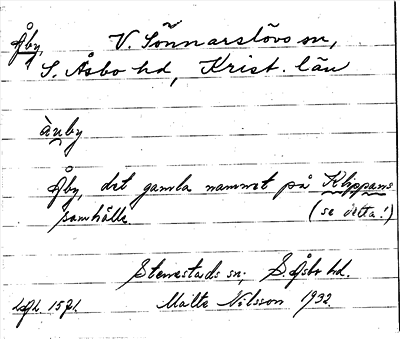 Åby, V. Sönnarslövs sn,
1 S. Åsbo hd, Krist. län
àu̯by
Åby, det gamla namnet på Klippans
samhälle. (se detta!)
Stenestads sn, S. Åsbo hd.
Malte Nilsson 1932.